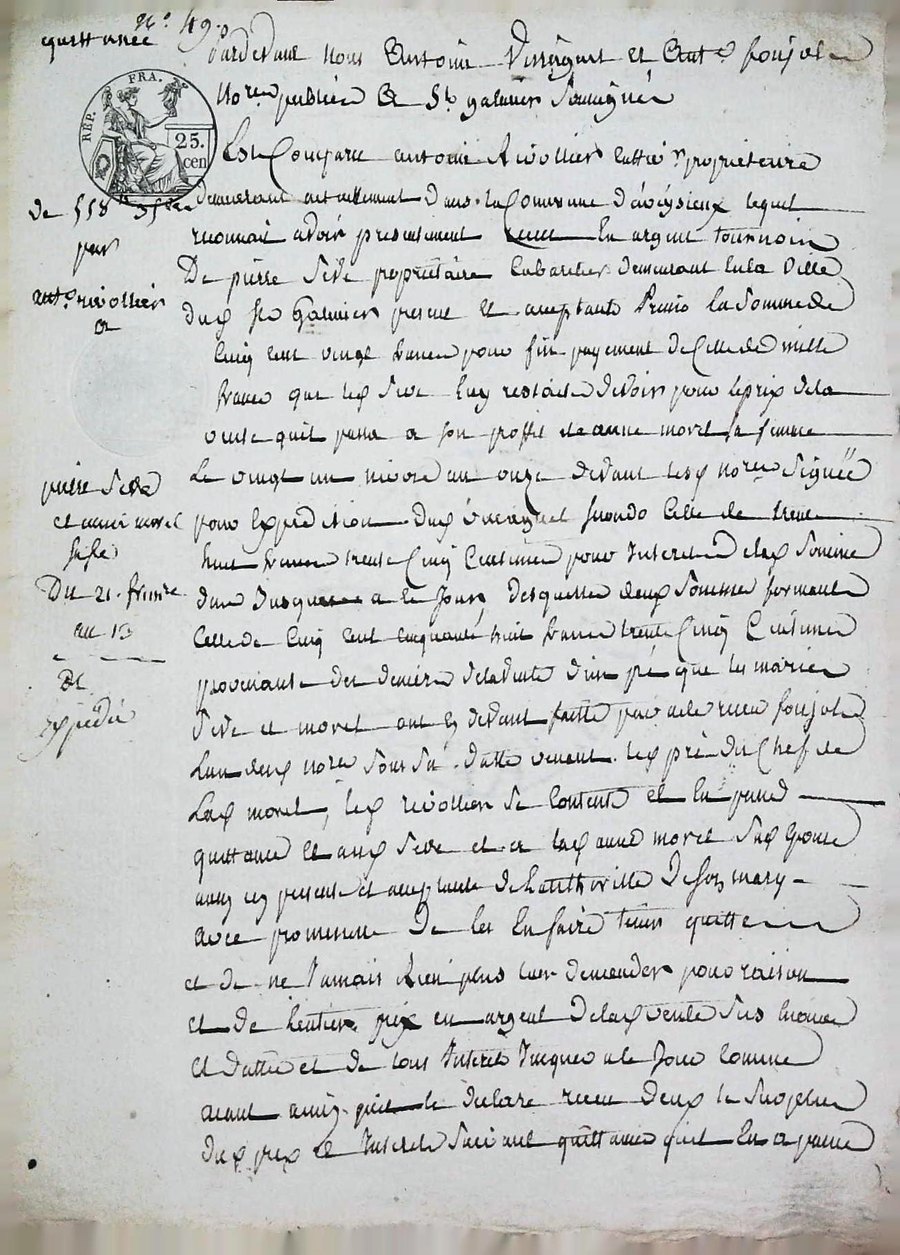 n.º 490
quittance
pardevant nous Antoine Verrignet et Ant.e
no.res publics a St galmier soussignés
REP. FRA.
25. cen
Est Comparu antoine Rivollier propriétaire
demeurant actuellement dans la Commune d'aveysieux lequel
reconnait avoir presentement receu En argent tournoin
De pierre Sève propriétaire Cabaretier demeurant En la ville
dud St Galmier present et acceptant Primo la Somme de
Cinq cent vingt francs pour fin payement de Celle de mille
francs que led Seve luy restoit devoir pour le prix de la
vente quil passa a son proffit de anne morel sa femme
Le vingt un nivose an onze devant lesd no.res Signée
pour Expedition Secondo Celle de trente
huit francs trente Cinq Centimes pour Interet de lad Somme
Jusques a ce Jour, desquelles deux Sommes formant
Celle de Cinq cent cinquante huit francs trente Cinq Centimes
provenant des deniers de la vente d'un pré que les mariés
Seve et morel ont cy devant faitte par acte receu
L'un desd no.res Sous Sa datte venant led pré du Chef de
Lad morel, led rivollier Se Contente et En passe
quittance Et aud Seve et a lad anne morel Sad Epouse
aussy icy presente et acceptante de Lautthorité De son mary
avec promesse De les En faire tenir quitte
et de ne Jamais Rien plus leur demander pour raison
et de Lentier prix en argent de lad vente Sus
Et datté et de tous Interet Jusques a ce Jour Comme
ayant ainsy quil le declare receu deux le Surplus
dud prix et Interet Suivant quittance quil En a passé
de 558 f 35 c
par
ant.e rivollier
a
pierre Seve
et anne morel
sa fe
Du 21. frimaire
an 13
De
Expedié